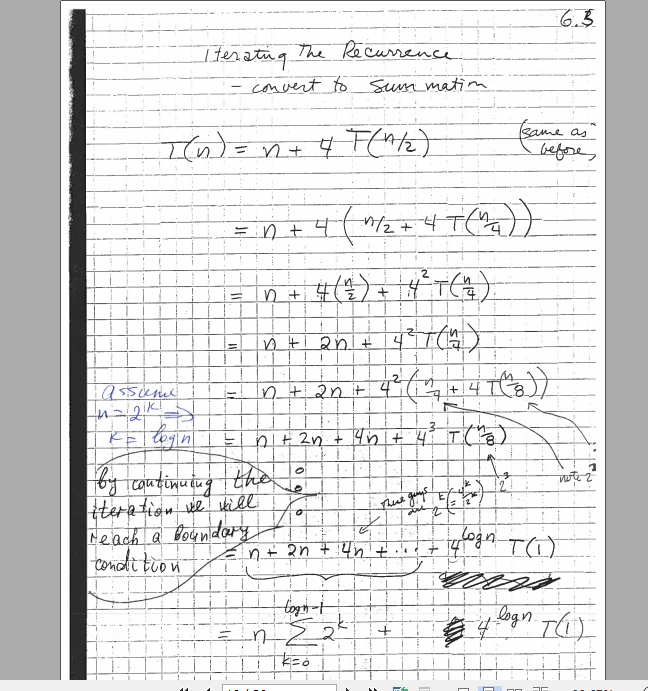 6.3
Iterating the Recurrence
- convert to summation
T(n) = n + 4 T(n/2)
(same as before)
= n + 4 ( n/2 + 4 T(n/4))
= n + 4(n/2) + 4² T(n/4)
= n + 2n + 4² T(n/4)
= n + 2n + 4² (n/4 + 4 T(n/8))
assume
n = 2^k ⇒
k = log n
= n + 2n + 4n + 4³ T(n/8)
note 2³
2³
by continuing the
iteration we will
reach a boundary
condition
These guys
are 2^k (= 4^k/2^k)
= n + 2n + 4n + ... + 4^log n T(1)
= n ∑_{k=0}^{log n-1} 2^k + 4^log n T(1)